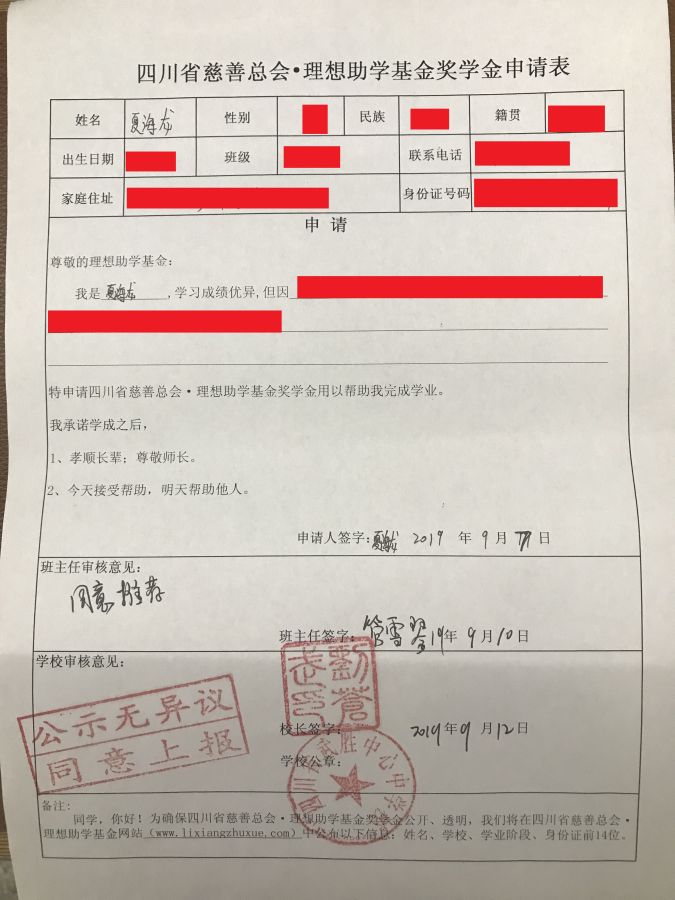 四川省慈善总会·理想助学基金奖学金申请表
姓名 夏海龙 性别 民族 籍贯
出生日期 班级 联系电话
家庭住址 身份证号码
申 请
尊敬的理想助学基金：
我是 夏海龙 ,学习成绩优异,但因
特申请四川省慈善总会·理想助学基金奖学金用以帮助我完成学业。
我承诺学成之后，
1、孝顺长辈；尊敬师长。
2、今天接受帮助，明天帮助他人。
申请人签字：夏海龙 2019 年 9 月 日
班主任审核意见：
同意推荐
班主任签字： 雪琴 19年 9月10日
学校审核意见：
公示无异议
同意上报
校长签字： 2019年9月12日
学校公章：
四川省武胜中心中学
备注：
同学，你好！为确保四川省慈善总会·理想助学基金奖学金公开、透明，我们将在四川省慈善总会·
理想助学基金网站（www.lixiangzhuxue.com）中公布以下信息：姓名、学校、学业阶段、身份证前14位。